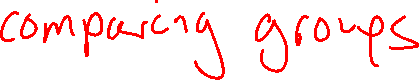 comparing groups